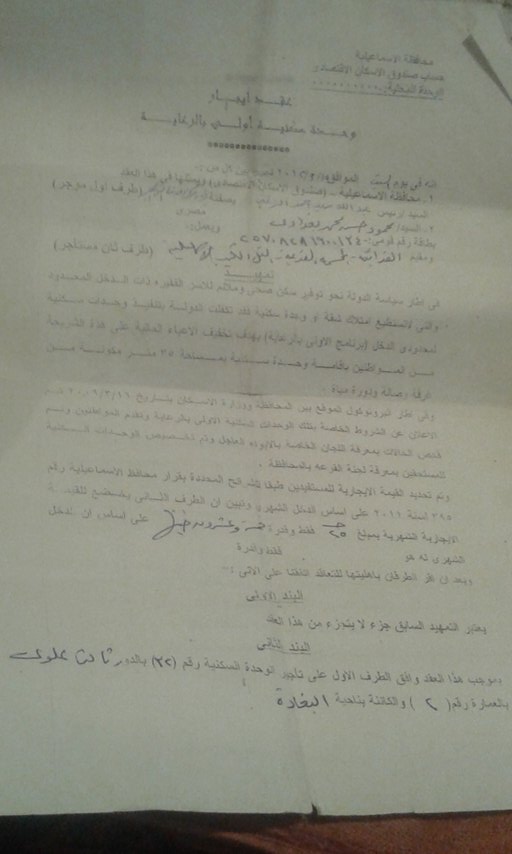 محافظة الاسماعيلية
حساب صندوق الاسكان الاقتصادى
الوحدة المحلية
عقد ايجار
وحدة سكنية أولى بالرعاية
انه فى يوم الموافق
١ - محافظة الاسماعيلية - (صندوق الاسكان الاقتصادى) ويمثلها فى هذا العقد
السيد / بصفته (طرف أول مؤجر)
السيد / محمود حسن محمد مصرى
بطاقة رقم قومى : ٢٥٧٠٨٢٨١٦٠٠١٢٤ ويعمل :
ومقيم (طرف ثان مستأجر)
تمهيد
فى إطار سياسة الدولة نحو توفير سكن صحى وملائم للاسر الفقيرة ذات الدخل المحدود
والتى لاتستطيع امتلاك شقة أو وحدة سكنية فقد تكفلت الدولة بتنفيذ وحدات سكنية
لمحدودى الدخل (برنامج الاولى بالرعاية) بهدف تخفيف الاعباء المالية على هذة الشريحة
من المواطنين باقامة وحدة سكنية بمساحة ٣٥ متر مكونة من
غرفة وصالة ودورة مياة .
وفى اطار البروتوكول الموقع بين المحافظة ووزارة الاسكان بتاريخ ٢٠٠٩/٣/١٦ تم
الاعلان عن الشروط الخاصة بتلك الوحدات السكنية الاولى بالرعاية وتقدم المواطنين وتم
فحص الحالات بمعرفة اللجان الخاصة بالايواء العاجل وتم تخصيص الوحدات السكنية
للمستحقين بمعرفة لجنة القرعه بالمحافظة .
وتم تحديد القيمة الايجارية للمستفيدين طبقا للشرائح المحددة بقرار محافظ الاسماعيلية رقم
٣٩٥ لسنة ٢٠١٢ على اساس الدخل الشهرى وتبين ان الطرف الثانى يخضع للقيمة
الايجارية الشهرية بمبلغ ٢٥ فقط وقدرة خمسة وعشرون جنيها على اساس ان الدخل
الشهرى له هو فقط وقدرة
وبعد ان اقر الطرفان باهليتها للتعاقد اتفقتا على الاتى :-
البند الاولى
يعتبر التمهيد السابق جزء لا يتجزء من هذا العقد
البند الثانى
بموجب هذا العقد وافق الطرف الاول على تأجير الوحدة السكنية رقم (٣٢) بالدور ثالث علوى
بالعمارة رقم (٢) والكائنة بناحية البغادة